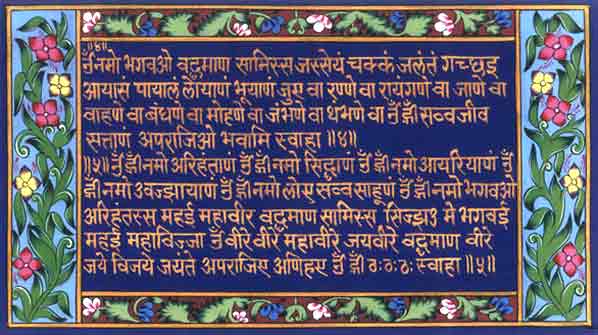 ॥४॥
ॐ नमो भगवओ वद्धमाण सामिस्स जस्सेयं चक्कं जलंतं गच्छइ
आयासं पायालं लोयाणं भूयाणं जुए वा रणणे वा रायंगणे वा जाणे वा
वाहणे वा बंधणे वा मोहणे वा जंभणे वा थंभणे वा ॐ ह्रीं सव्वजीव
सत्ताणं अपराजिओ भवामि स्वाहा ॥४॥
॥५॥ ॐ ह्रीं नमो अरिहंताणं ॐ ह्रीं नमो सिद्धाणं ॐ ह्रीं नमो आयरियाणं ॐ
ह्रीं नमो उवज्झायाणं ॐ ह्रीं नमो लोए सव्व साहूणं ॐ ह्रीं नमो भगवओ
अरिहंतस्स महई महावीर वद्धमाण सामिस्स सिज्झउ मे भगवई
महई महाविज्जा ॐ वीरे वीरे महावीरे जयवीरे वद्धमाण वीरे
जये विजये जयंते अपराजिए अणिहए ॐ ह्रीं ठः ठः ठः स्वाहा ॥५॥